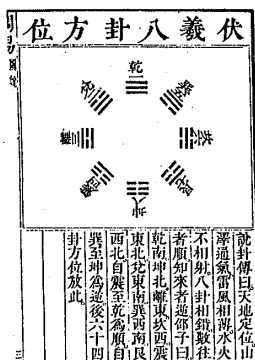 伏羲八卦方位
乾一
兌二
離三
震四
巽五
坎六
艮七
坤八
說卦傳曰天地定位山
澤通氣雷風相薄水火
不相射八卦相錯數往
者順知來者逆邵子曰
乾南坤北離東坎西震
東北兌東南巽西南艮
西北自震至乾為順自
巽至坤為逆後六十四
卦方位放此